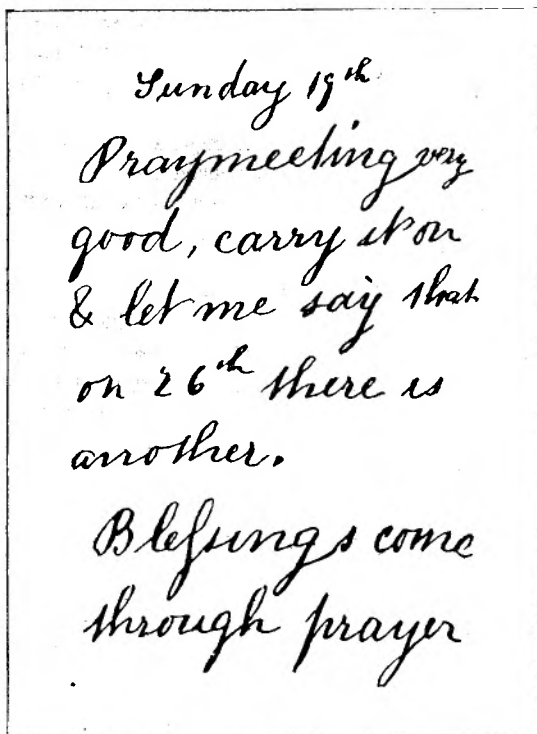 Sunday 19th
Praymeeting very
good, carry it on
& let me say that
on 26th there is
another.
Bleſsings come
through prayer